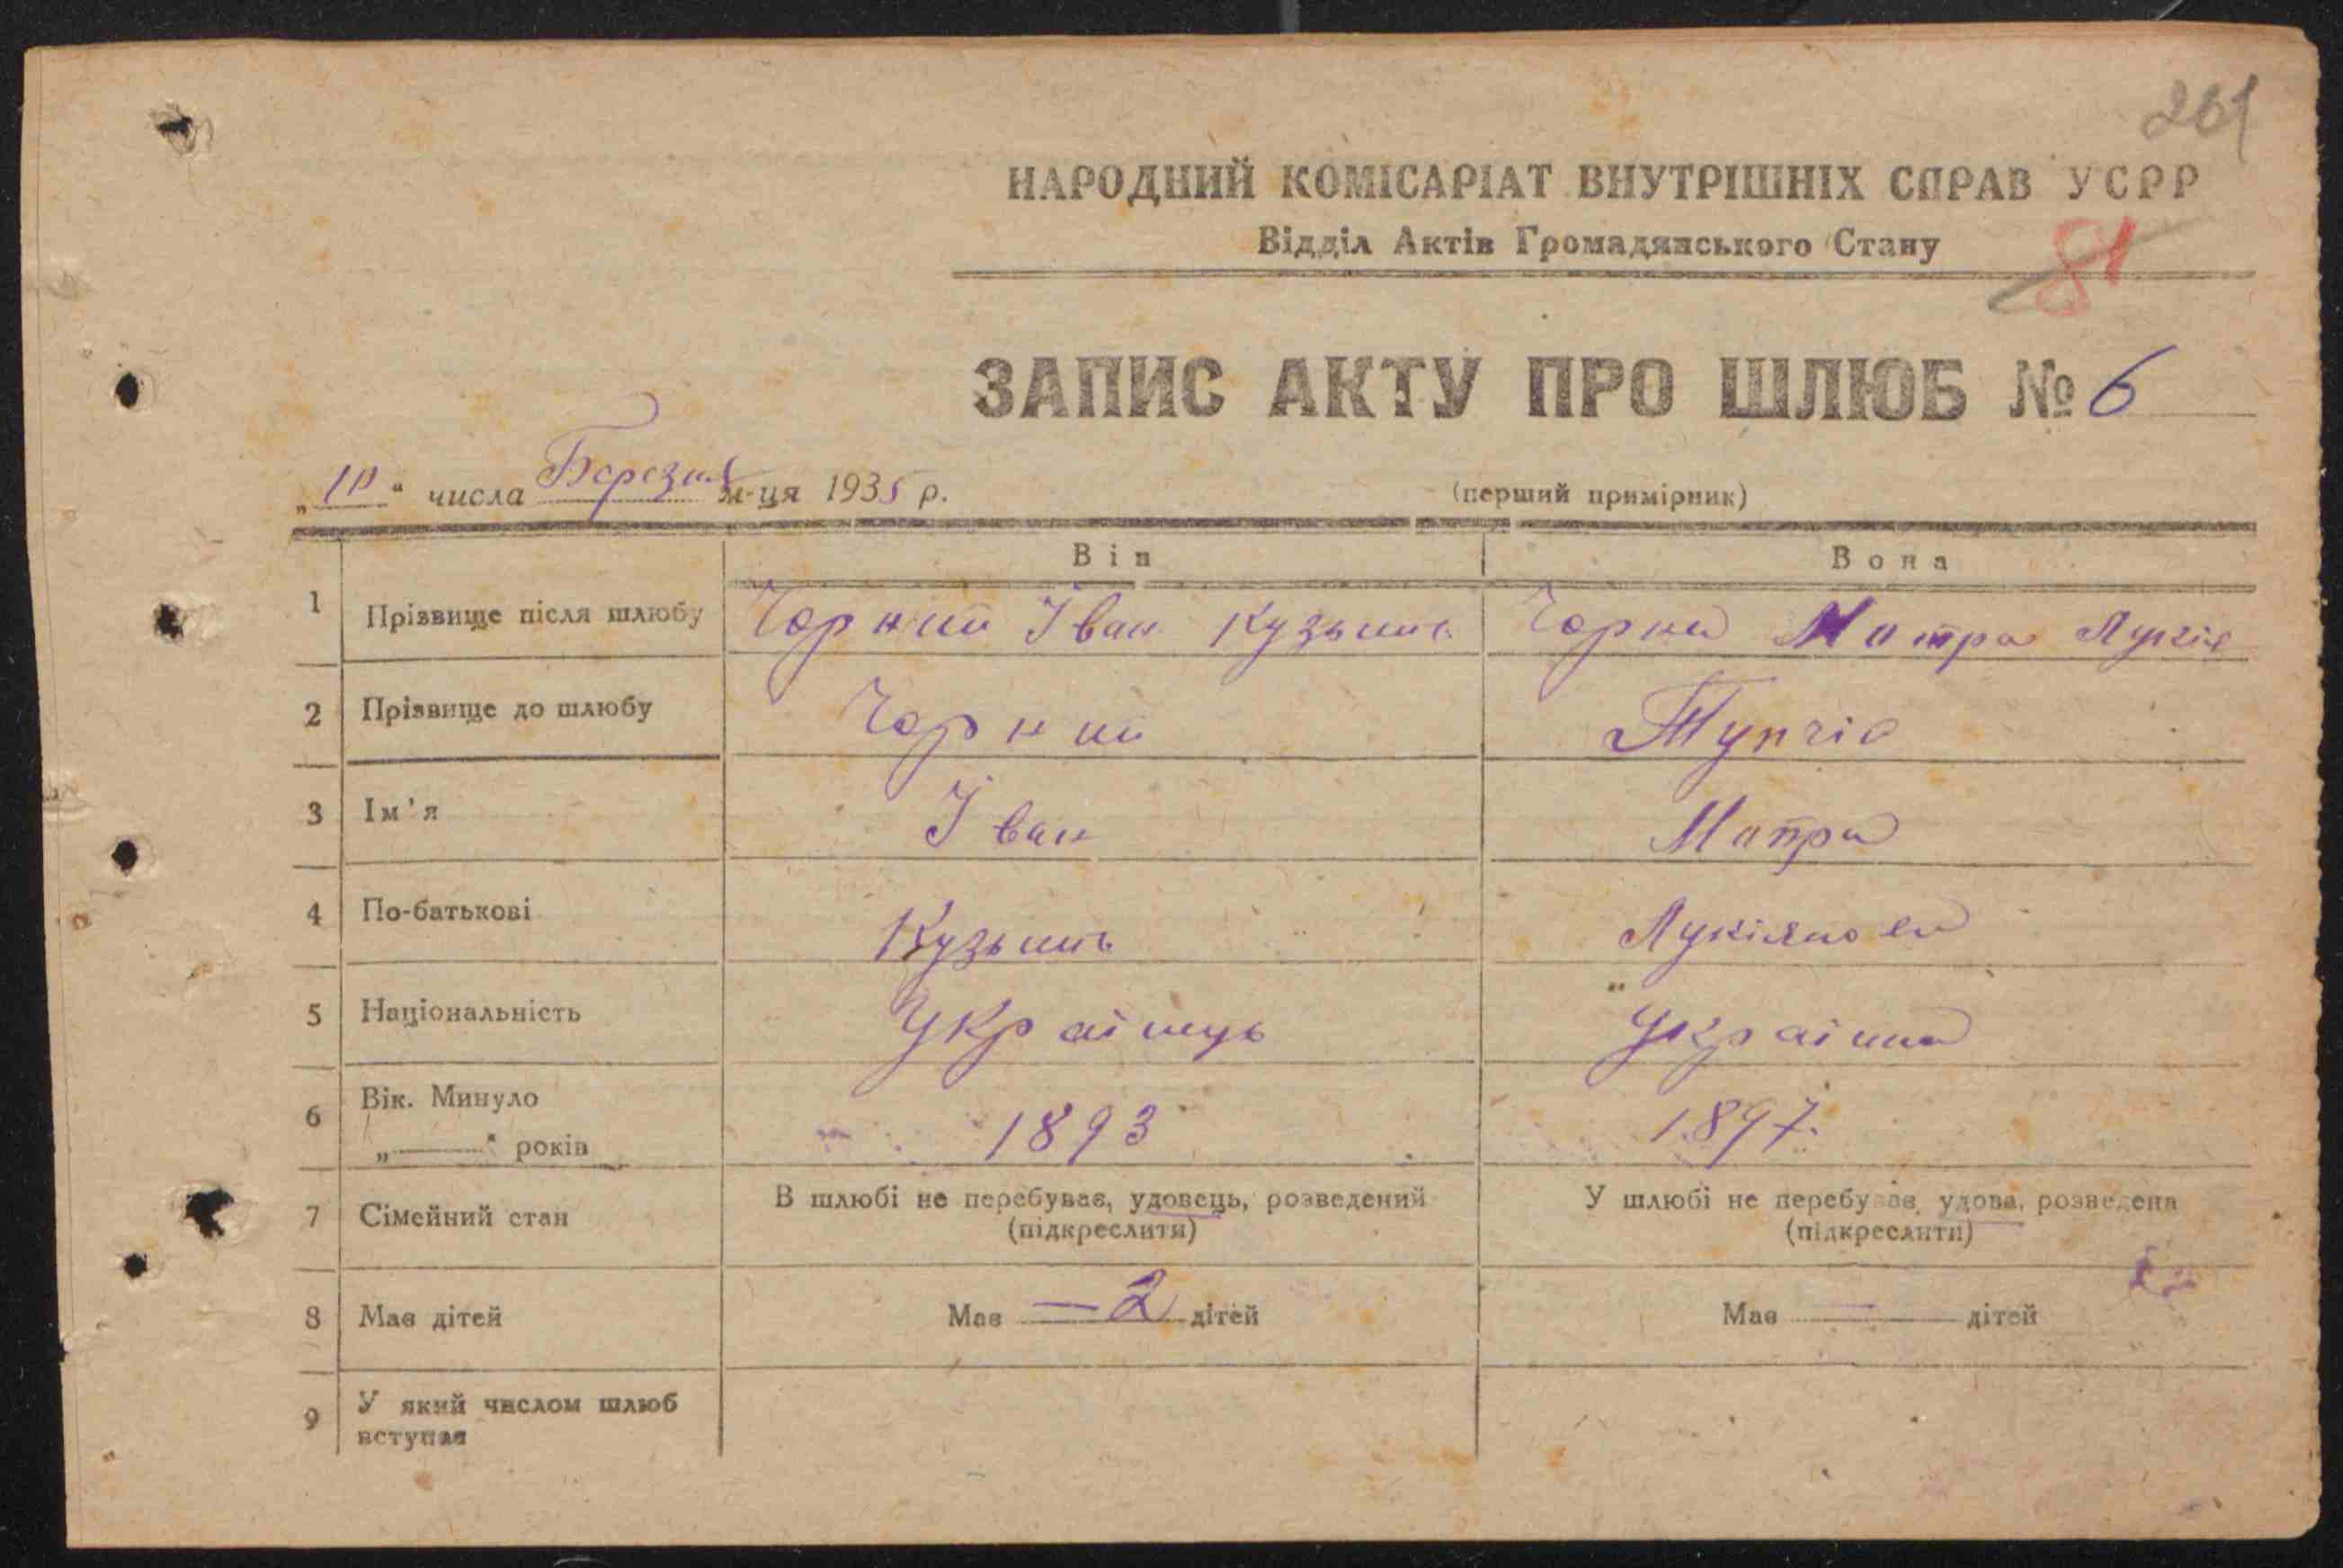 201
НАРОДНИЙ КОМІСАРІАТ ВНУТРІШНІХ СПРАВ УСРР
Відділ Актів Громадянського Стану
81
ЗАПИС АКТУ ПРО ШЛЮБ № 6
„10“ числа м-ця 1935 р.
(перший примірник)
Він Вона
1 Прізвище після шлюбу Чорний Іван Кузьмич Чорна Мотра
2 Прізвище до шлюбу Чорний
3 Ім'я Іван Мотра
4 По-батькові Кузьмич Лукіянова
5 Національність Українець Українка
6 Вік. Минуло
„——“ років 1893 1897.
7 Сімейний стан В шлюбі не перебуває, удовець, розведений У шлюбі не перебуває, удова, розведена
(підкреслити) (підкреслити)
8 Має дітей Має — 2 дітей Має — дітей
9 У який числом шлюб
вступає